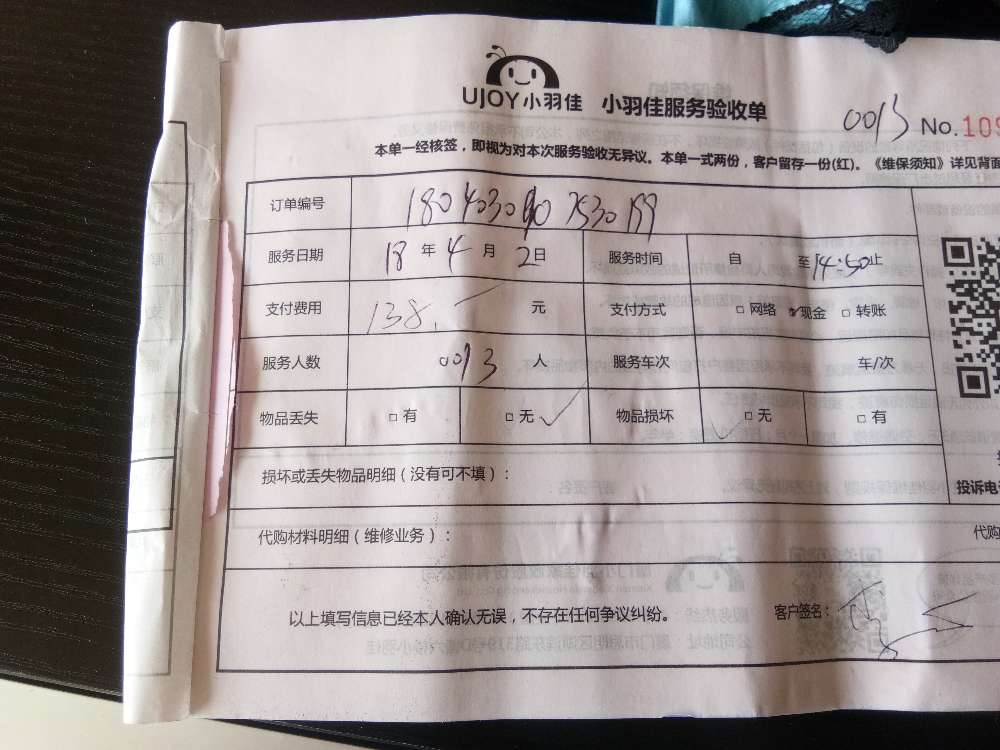 UJOY小羽佳 小羽佳服务验收单
0013 No.109
本单一经核签，即视为对本次服务验收无异议。本单一式两份，客户留存一份(红)。《维保须知》详见背面
订单编号 180403090 7530199
服务日期 18 年 4 月 2 日 服务时间 自 至 14:50 止
支付费用 138.一 元 支付方式 □ 网络 现金 □ 转账
服务人数 0013 人 服务车次 车/次
物品丢失 □ 有 □ 无 ✓ 物品损坏 ✓ □ 无 □ 有
损坏或丢失物品明细（没有可不填）：
投诉电
代购材料明细（维修业务）： 代购
以上填写信息已经本人确认无误，不存在任何争议纠纷。 客户签名：